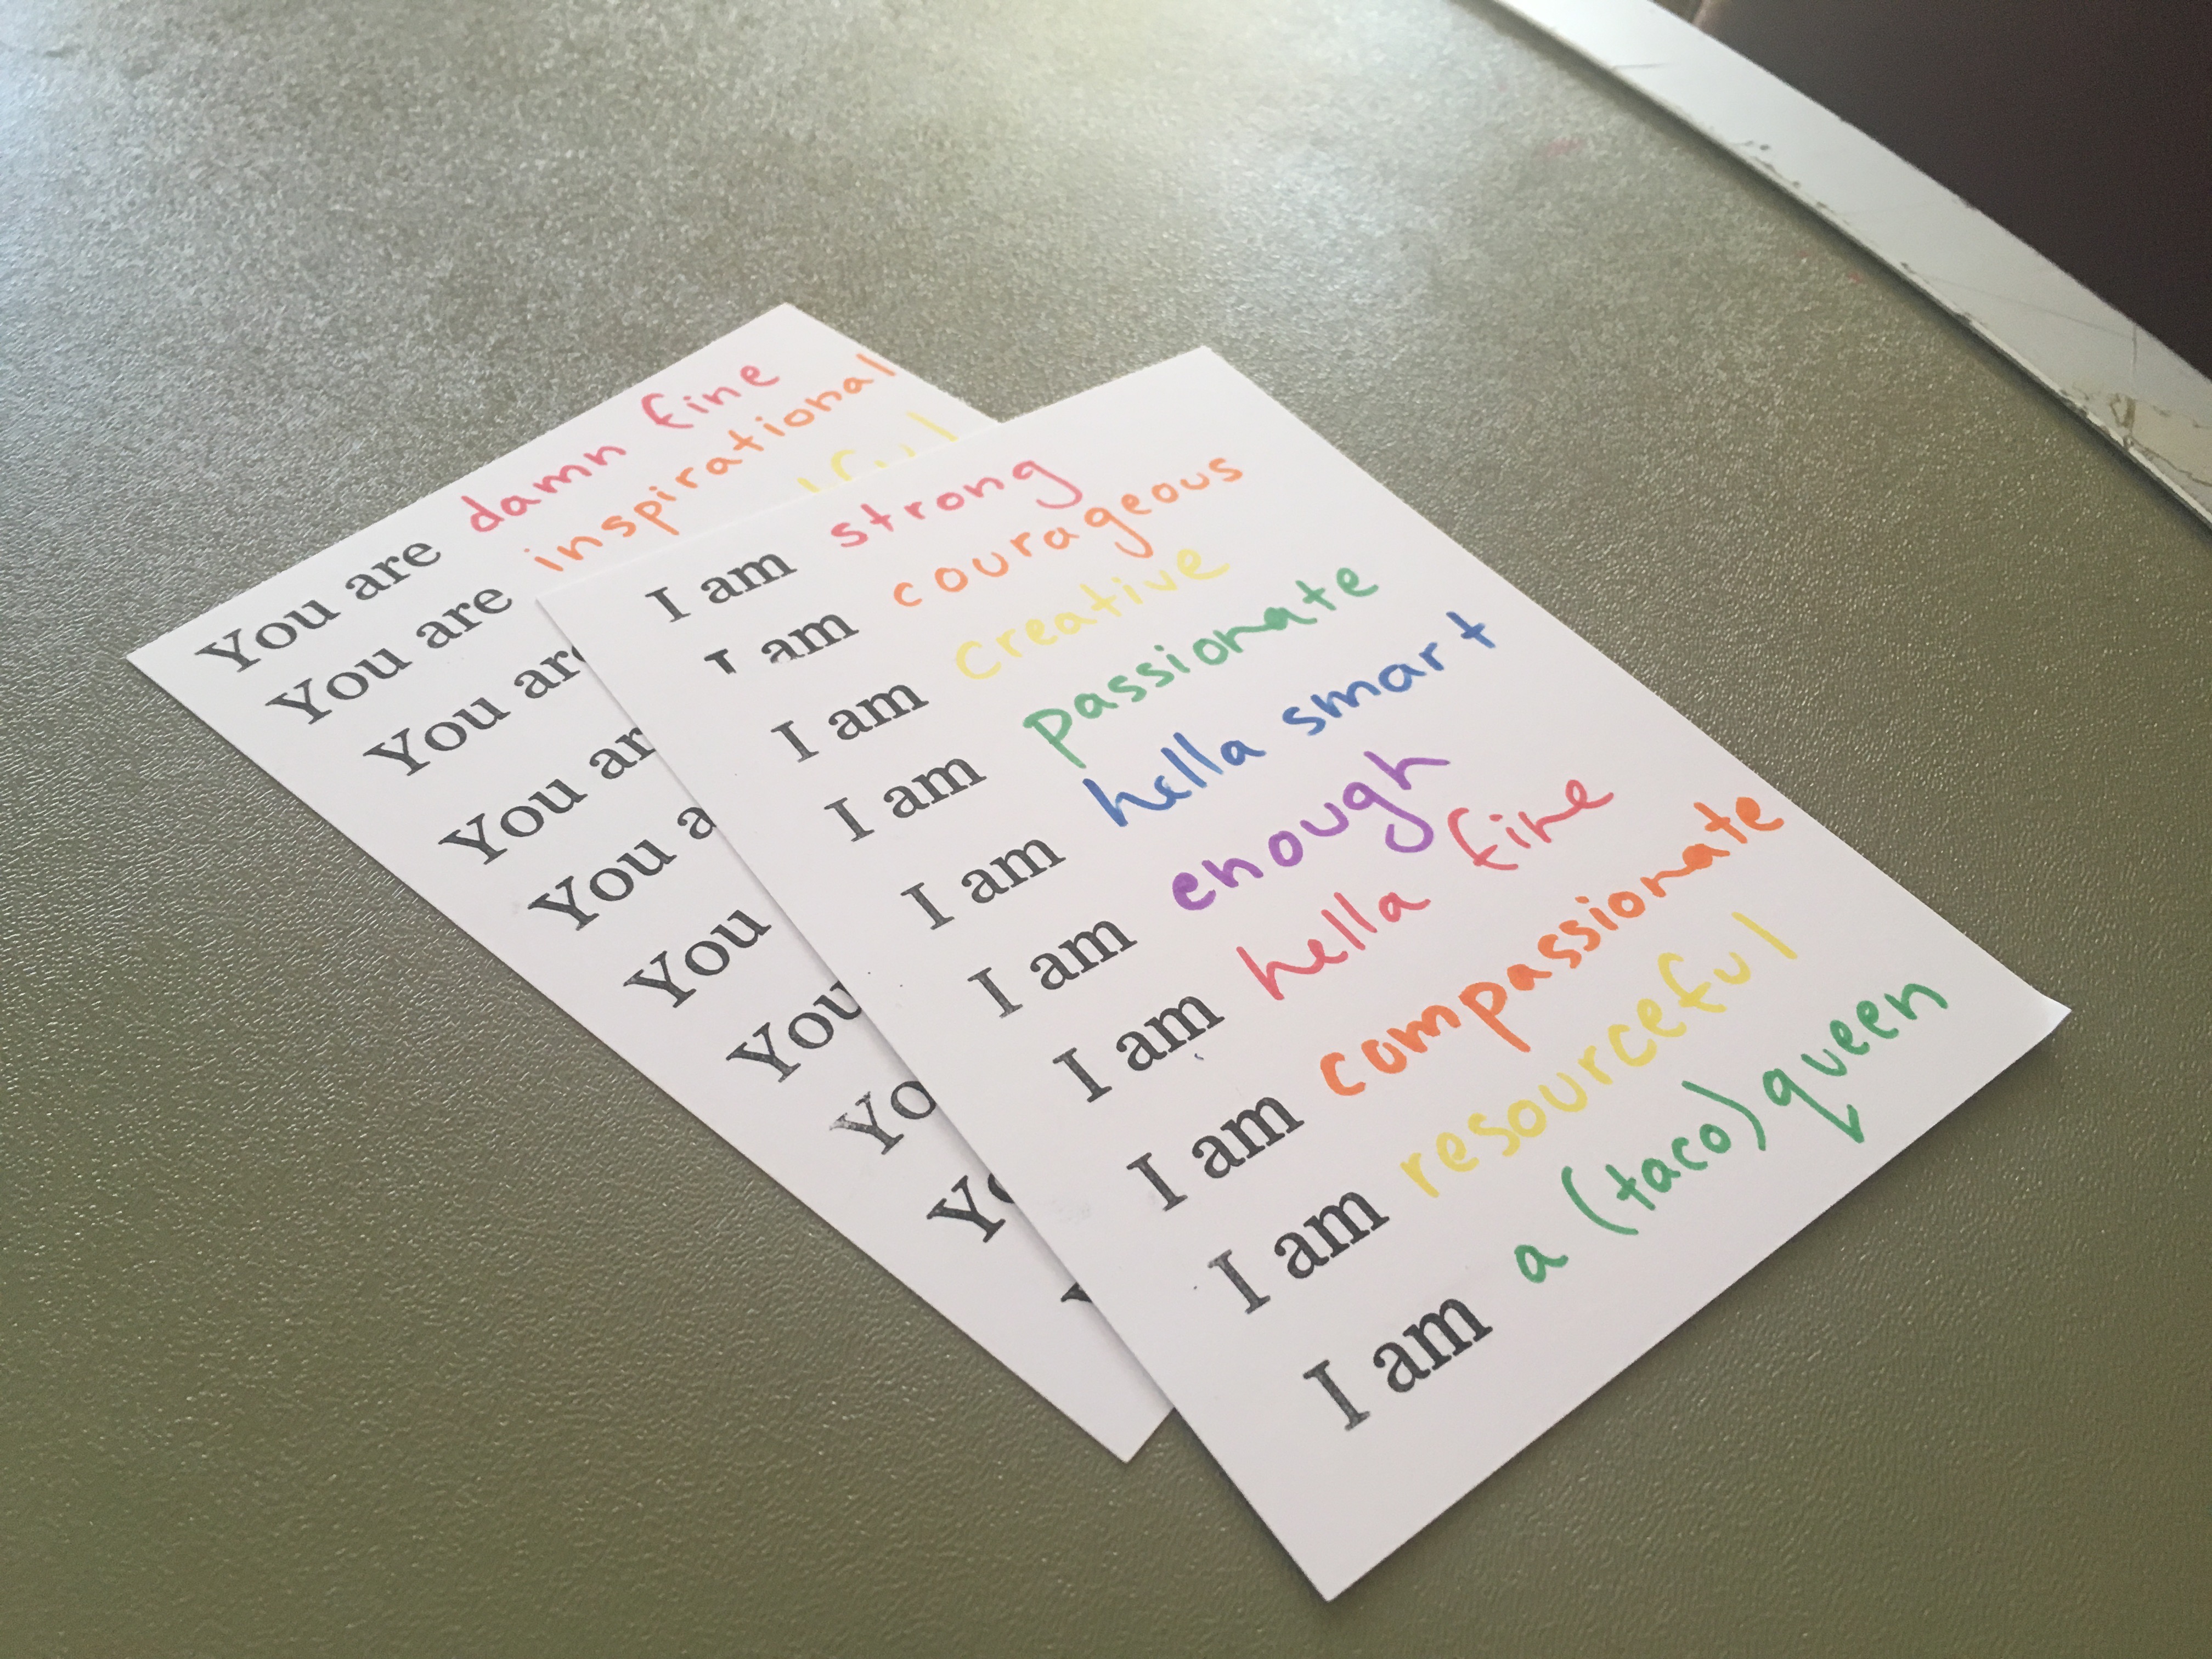 You are damn fine
You are inspirational
You are
You are
You
You
You
You
You
I am strong
I am courageous
I am creative
I am passionate
I am hella smart
I am enough
I am hella fine
I am compassionate
I am resourceful
I am a (taco) queen